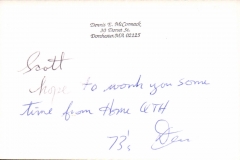 Dennis E. McCormack
Dorchester, MA 02125
Scott
hope to work you some
time from Home QTH
73's Den